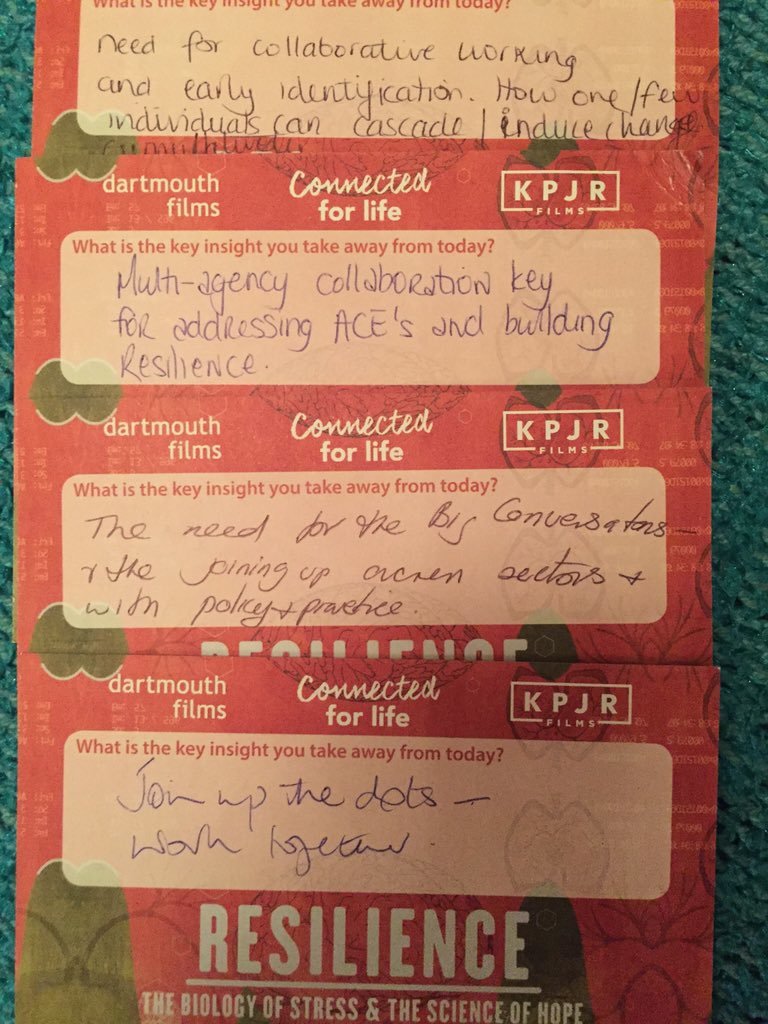 What is the key insight you take away from today?
need for collaborative working
and early identification. How one/few
individuals can cascade / induce change
dartmouth films
Connected for life
KPJR FILMS
What is the key insight you take away from today?
Multi-agency collaboration key
for addressing ACE's and building
Resilience.
dartmouth films
Connected for life
KPJR FILMS
What is the key insight you take away from today?
The need for the Big Conversations –
& the joining up across sectors &
with policy & practice.
RESILIENCE
dartmouth films
Connected for life
KPJR FILMS
What is the key insight you take away from today?
Join up the dots –
work together.
RESILIENCE
THE BIOLOGY OF STRESS & THE SCIENCE OF HOPE